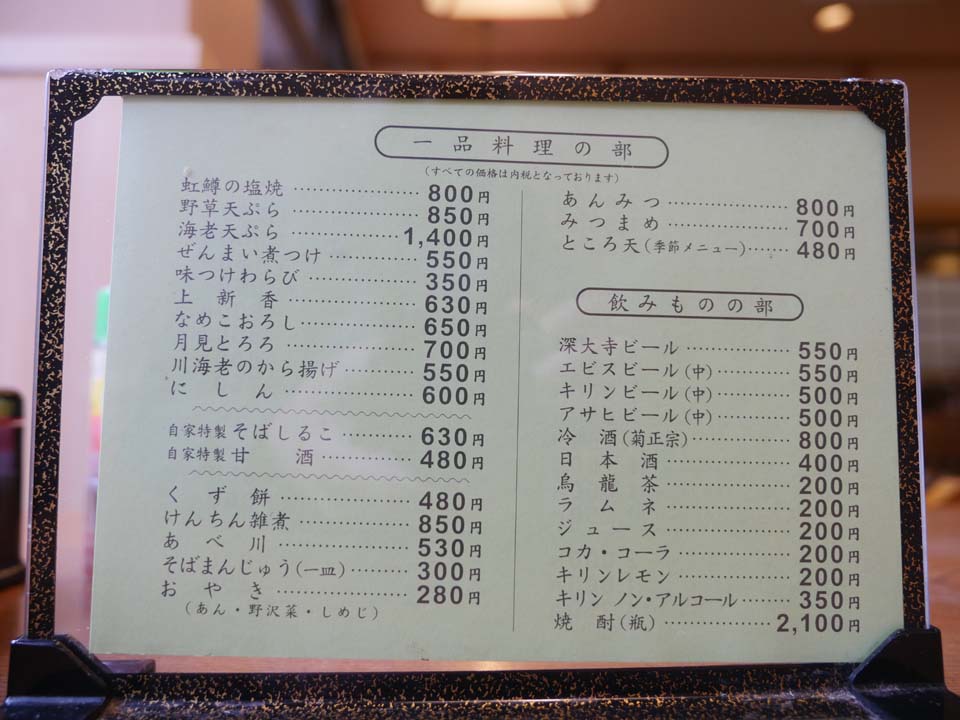 一品料理の部
(すべての価格は内税となっております)
虹鱒の塩焼 ……………… 800円
野草天ぷら ……………… 850円
海老天ぷら ……………… 1,400円
ぜんまい煮つけ ………… 550円
味つけわらび …………… 350円
上新香 …………………… 630円
なめこおろし …………… 650円
月見とろろ ……………… 700円
川海老のから揚げ ……… 550円
にしん …………………… 600円
自家特製 そばしるこ …… 630円
自家特製 甘酒 …………… 480円
くず餅 …………………… 480円
けんちん雑煮 …………… 850円
あべ川 …………………… 530円
そばまんじゅう(一皿) …… 300円
おやき …………………… 280円
(あん・野沢菜・しめじ)
あんみつ ………………… 800円
みつまめ ………………… 700円
ところ天(季節メニュー)…… 480円
飲みものの部
深大寺ビール …………… 550円
エビスビール(中) ……… 550円
キリンビール(中) ……… 500円
アサヒビール(中) ……… 500円
冷酒(菊正宗) …………… 800円
日本酒 …………………… 400円
烏龍茶 …………………… 200円
ラムネ …………………… 200円
ジュース ………………… 200円
コカ・コーラ …………… 200円
キリンレモン …………… 200円
キリン ノン・アルコール …… 350円
焼酎(瓶) ………………… 2,100円